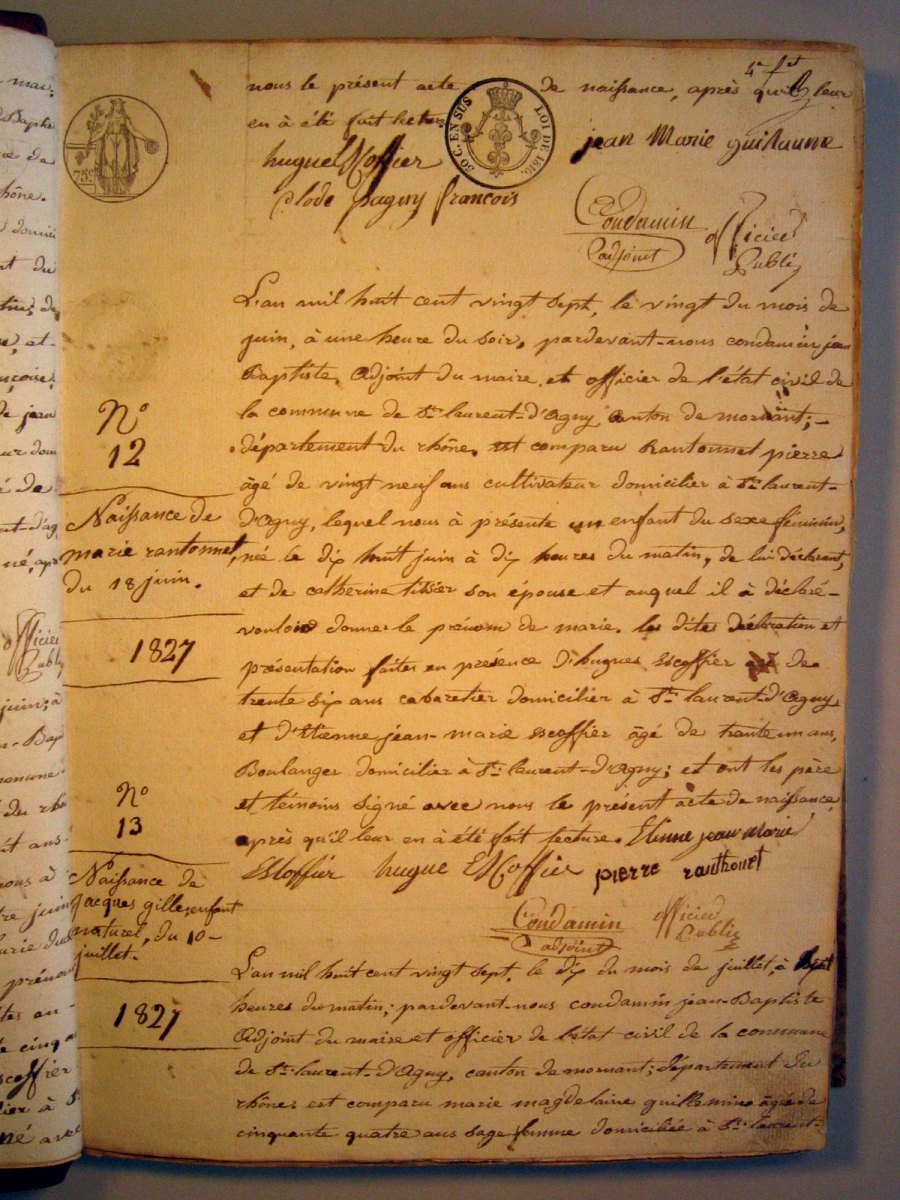 4e f et
nous le présent acte de naissance, après qu'il leur
en à été fait lecture
75c
50 C. EN SUS LOI DE 1816.
jean Marie guillaume
hugue Escoffier
Clode Paguy francois
Condamin officier
adjoint Public
L'an mil huit cent vingt sept, le vingt du mois de
juin, à une heure du soir, pardevant-nous condamin jean
Baptiste, Adjoint du maire et officier de l'état civil de
la commune de St laurent-d'Agny canton de mornant;
département du rhône. est comparu Rantonnet pierre
âgé de vingt neuf ans cultivateur domicilier à St laurent-
d'Agny, lequel nous à présenté un enfant du sexe féminin,
né le dix huit juin à dix heures du matin, de lui déclarant,
et de catherine tissier son épouse et auquel il à déclaré
vouloir donner le prénom de marie. les dites déclaration et
présentation faites en présence d'hugues Escoffier de
trente six ans cabaretier domicilier à St laurent-d'Agny,
et d'Etienne jean-marie escoffier âgé de trente un ans,
Boulanger domicilier à St laurent-d'Agny; et ont les père
et témoins signé avec nous le présent acte de naissance
après qu'il leur en à été fait lecture. Etienne jean Marie
Escoffier hugue Escoffier pierre ranthonet
Condamin officier
adjoint Public
L'an mil huit cent vingt sept, le dix du mois de juillet, à sept
heures du matin; pardevant-nous condamin jean-Baptiste
Adjoint du maire et officier de l'état civil de la commune
de St laurent-d'Agny, canton de mornant; département du
rhône. est comparu marie magdelaine guillemine âgée de
cinquante quatre ans sage femme domiciliée à St laurent-
No
12
Naissance de
marie rantonnet,
du 18 juin.
1827
No
13
Naissance de
jacques gille, enfant
naturel, du 10
juillet.
1827